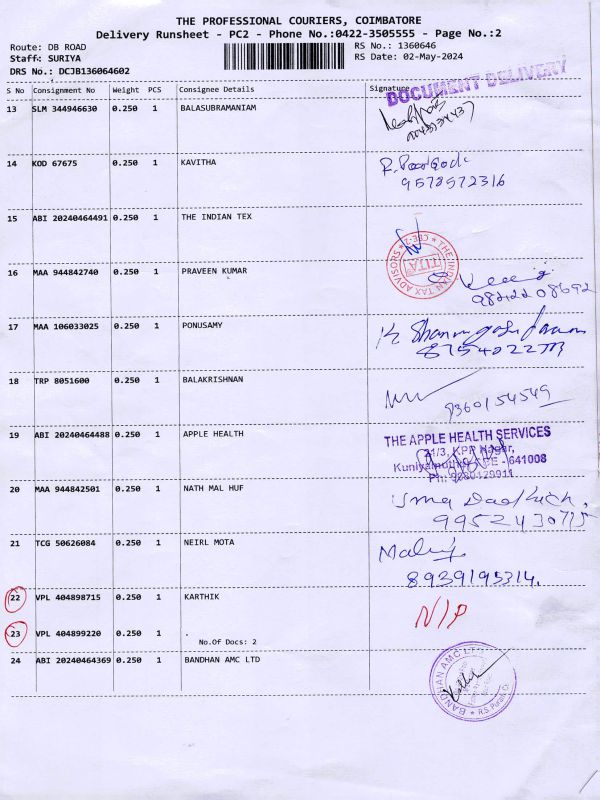 THE PROFESSIONAL COURIERS, COIMBATORE
Delivery Runsheet - PC2 - Phone No.:0422-3505555 - Page No.:2
Route: DB ROAD
RS No.: 1360646
Staff: SURIYA
RS Date: 02-May-2024
DRS No.: DCJB136064602
S No Consignment No Weight PCS Consignee Details Signature
DOCUMENT DELIVERY
13 SLM 344946630 0.250 1 BALASUBRAMANIAM
14 KOD 67675 0.250 1 KAVITHA
9578572316
15 ABI 20240464491 0.250 1 THE INDIAN TEX
THE INDIAN TAX ADVISORS
TITA
16 MAA 944842740 0.250 1 PRAVEEN KUMAR
9842208692
17 MAA 106033025 0.250 1 PONUSAMY
18 TRP 8051600 0.250 1 BALAKRISHNAN
9360154549
19 ABI 20240464488 0.250 1 APPLE HEALTH
THE APPLE HEALTH SERVICES
21/3, KPR Nagar,
641008
20 MAA 944842501 0.250 1 NATH MAL HUF
Uma
21 TCG 50626084 0.250 1 NEIRL MOTA
8939195314.
22 VPL 404898715 0.250 1 KARTHIK
N/P
23 VPL 404899220 0.250 1 .
No.Of Docs: 2
24 ABI 20240464369 0.250 1 BANDHAN AMC LTD
BANDHAN AMC LTD